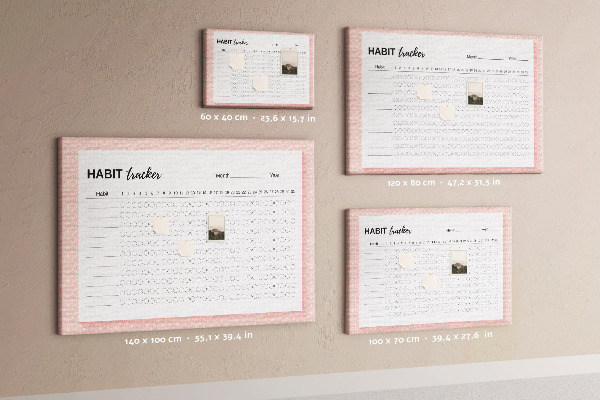 HABIT tracker
60 x 40 cm - 23,6 x 15,7 in
HABIT tracker
Month
Year
Habit
120 x 80 cm - 47,2 x 31,5 in
HABIT tracker
Month
Year
Habit
1 2 3 4 5 6 7 8 9 10 11 12 13 14 15 16 17 18 19 20 21 22 23 24 25 26 27 28 29 30 31
140 x 100 cm - 55,1 x 39,4 in
HABIT tracker
100 x 70 cm - 39,4 x 27,6 in